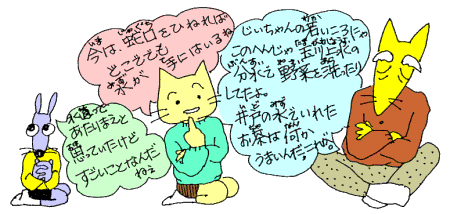 今は、蛇口をひねれば
どこででも
水が手にはいるね
じいちゃんの若いころにゃ
このへんじゃ玉川上水の
分水で野菜を洗ったり
してたよ。
井戸の水でいれた
お茶は何か
うまいんだ
水道って
あたりまえと
思っていたけど
すごいことなんだ
ねぇ